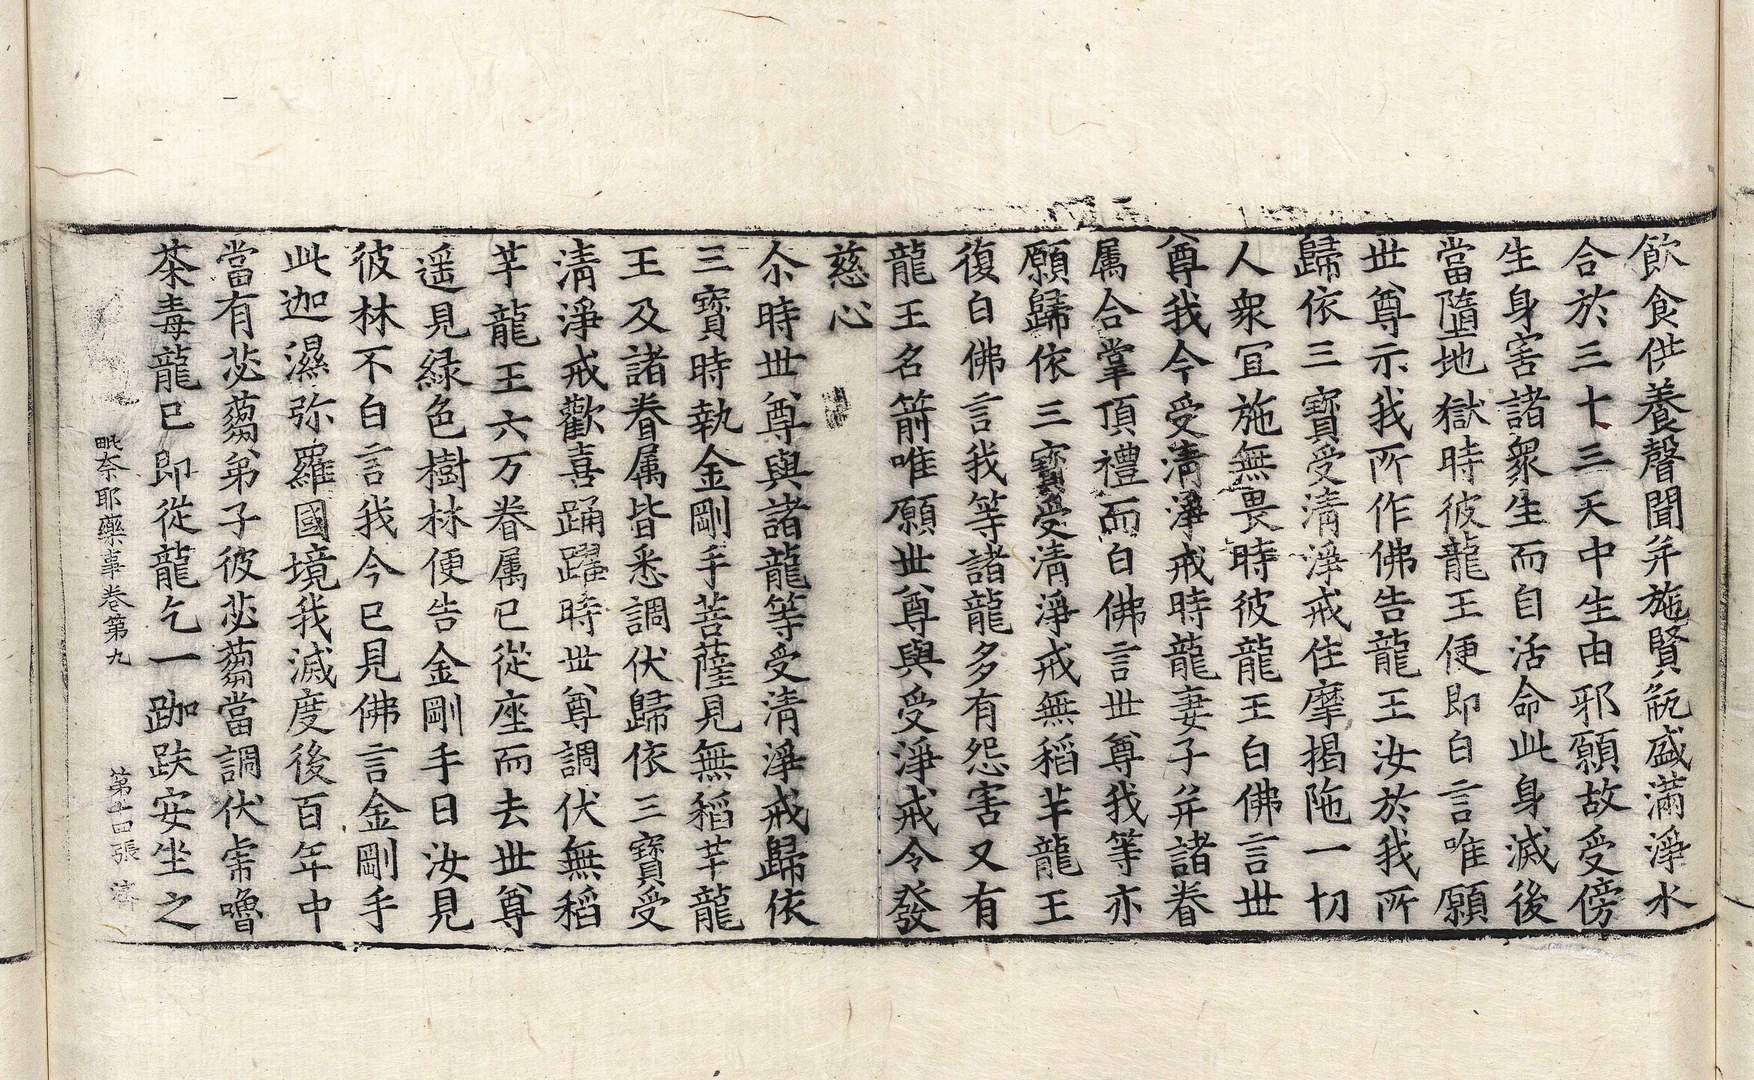 飲食供養聲聞并施賢瓶盛滿淨水
合於三十三天中生由邪願故受傍
生身害諸衆生而自活命此身滅後
當墮地獄時彼龍王便即白言唯願
世尊示我所作佛告龍王汝於我所
歸依三寶受清淨戒住摩揭陁一切
人衆冝施無畏時彼龍王白佛言世
尊我今受清淨戒時龍妻子并諸眷
属合掌頂禮而白佛言世尊我等亦
願歸依三寶受清淨戒無稻芉龍王
復白佛言我等諸龍多有怨害又有
龍王名箭唯願世尊與受淨戒令發
慈心
尒時世尊與諸龍等受清淨戒歸依
三寶時執金剛手菩薩見無稻芉龍
王及諸眷属皆悉調伏歸依三寶受
清淨戒歡喜踊躍時世尊調伏無稻
芉龍王六万眷属已從座而去世尊
遥見緑色樹林便告金剛手曰汝見
彼林不白言我今已見佛言金剛手
此迦濕弥羅國境我滅度後百年中
當有苾蒭弟子彼苾蒭當調伏虐嚕
茶毒龍已即從龍乞一跏趺安坐之
毗奈耶藥事卷第九 第十四張 濟